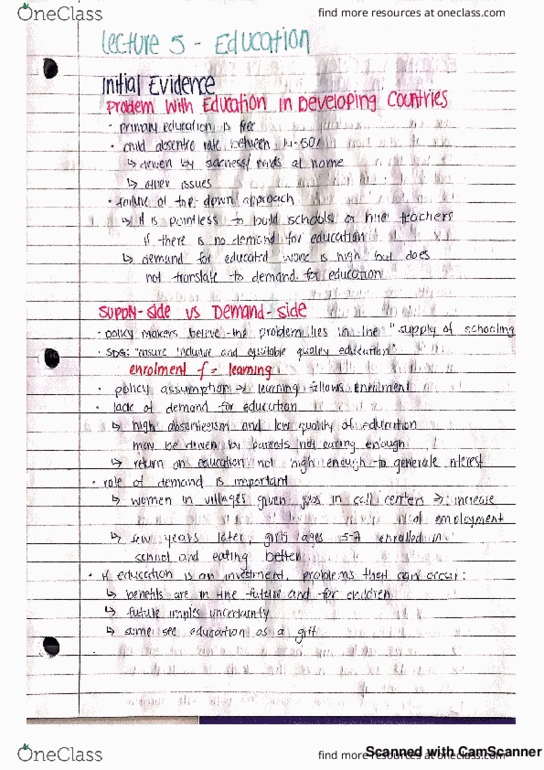 OneClass
find more resources at oneclass.com
Lecture 5 - Education
Initial Evidence
Problem with Education in Developing Countries
· primary education is free
· child absentee rate between 14-50%
↳ driven by sickness/needs at home
↳ other issues
· failure of top down approach
↳ it is pointless to build schools or hire teachers
if there is no demand for education
↳ demand for educated work is high but does
not translate to demand for education
Supply-side vs Demand-side
· policy makers believe the problem lies in the "supply of schooling
· SDG: "ensure inclusive and equitable quality education"
enrolment ≠ learning
· policy assumption => learning follows enrolment
· lack of demand for education
↳ high absenteeism and low quality of education
may be driven by parents not caring enough
↳ return on education not high enough to generate interest
· role of demand is important
↳ women in villages given jobs in call centers => increase
of employment
↳ few years later, girls ages 5-7 enrolled in
school and eating better
· if education is an investment, problems that can occur:
↳ benefits are in the future and for children
↳ future implies uncertainty
↳ some see education as a gift
OneClass
find more resources at oneclass.com
Scanned with CamScanner